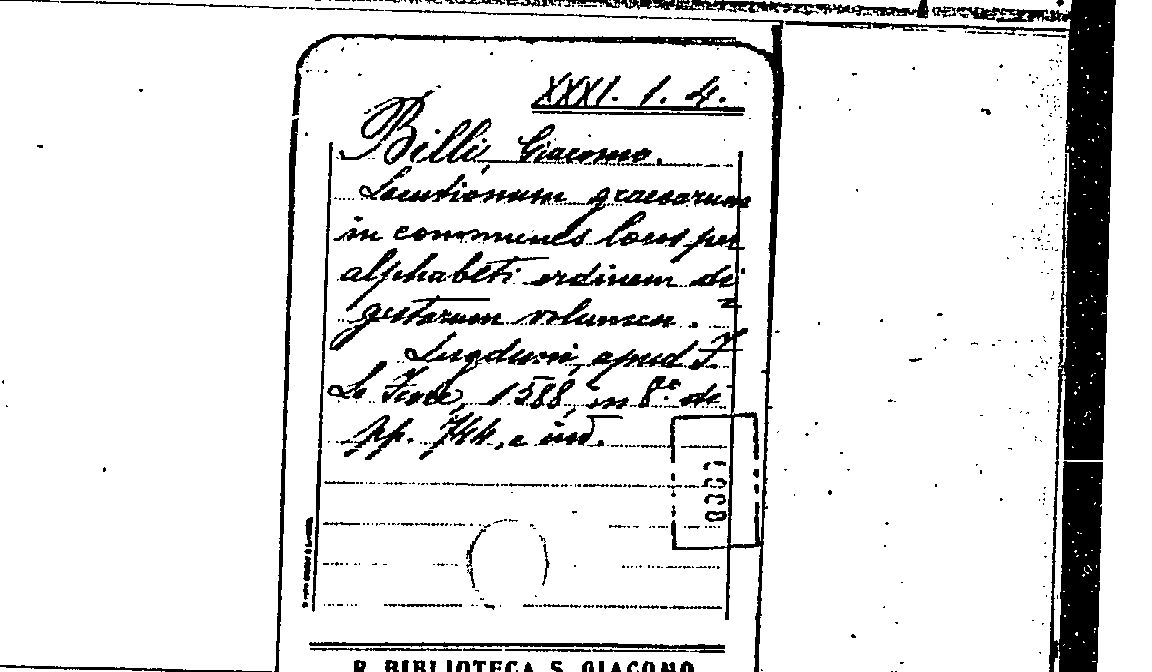 XXXI. 1. 4.
Billi, Giacomo.
Locutionum graecarum
in communes locos per
alphabeti ordinem di=
gestarum volumen.
Lugduni, apud I.
Le Fevre, 1588, in 8.° di
pp. 744, e ind.
R. BIBLIOTECA S. GIACOMO